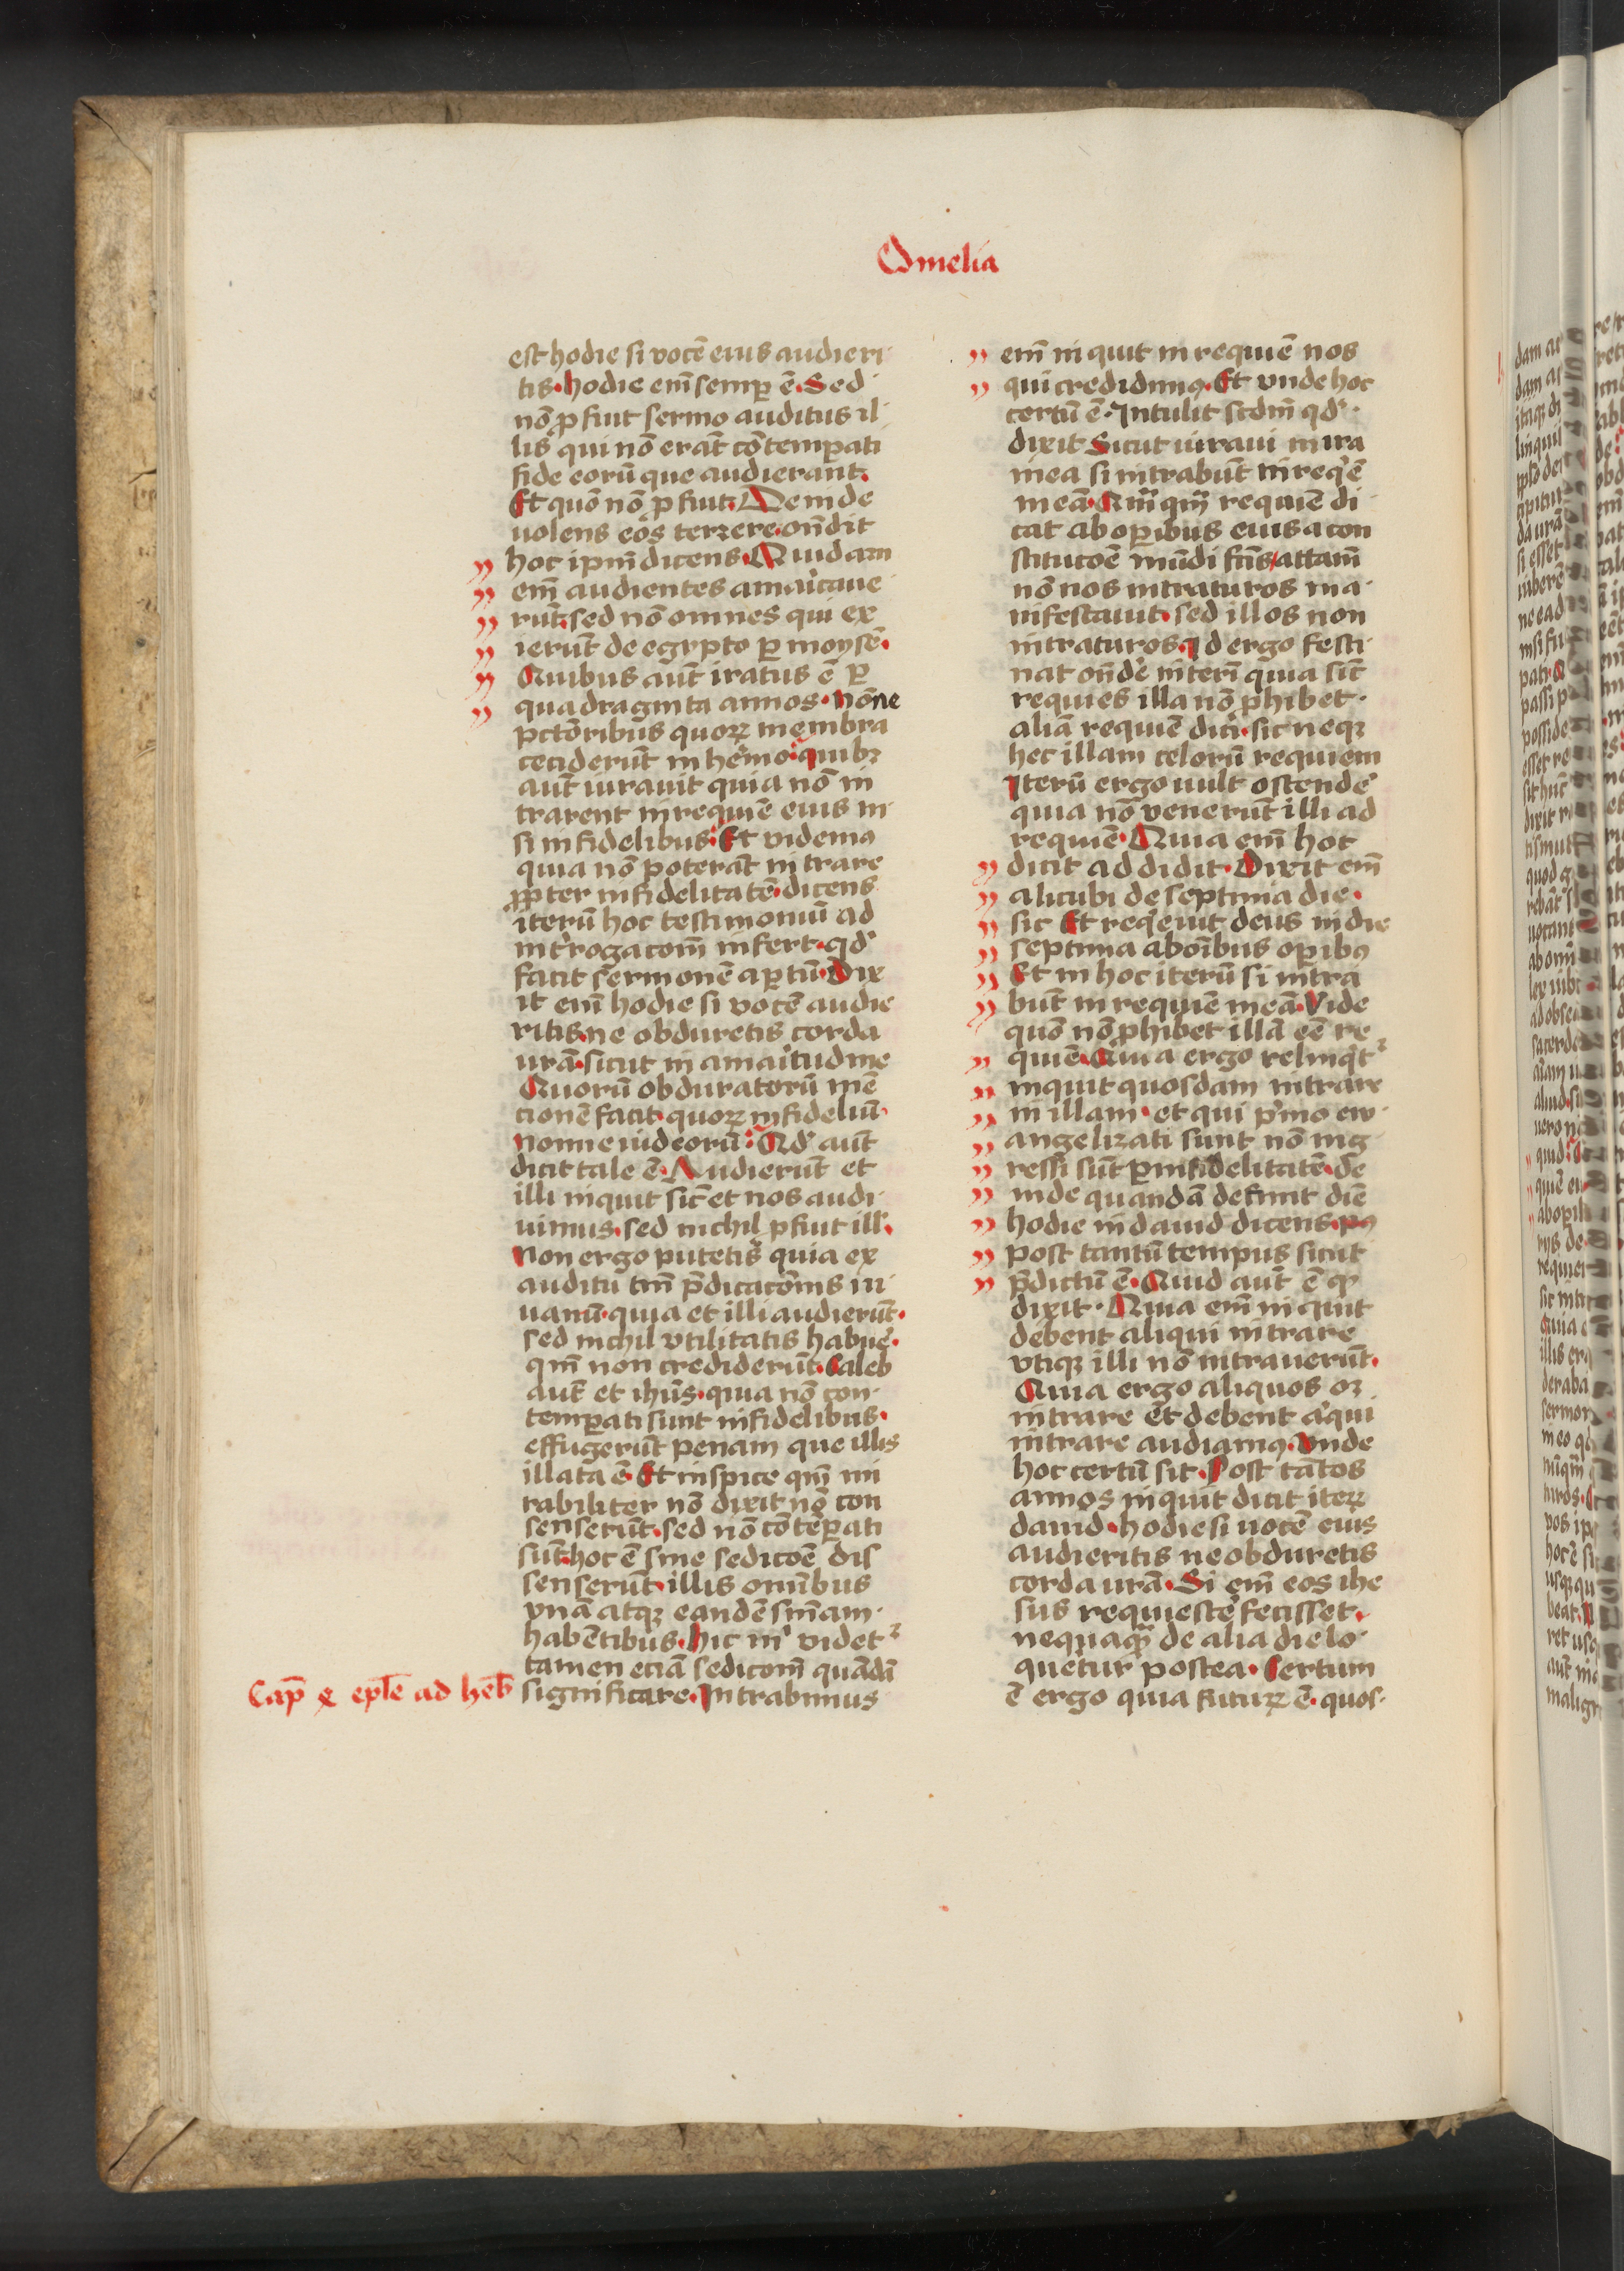 Omelia
est hodie si vocē eius audieri
tis. hodie em̄ semp̱ ē. Sed
nō ꝓfuit sermo auditus il
lis qui nō erāt cōtemperati
fide eorū que audierant.
Et quō nō ꝓfuit. Deinde
uolens eos terrere on̄dit
hoc ip̄m dicens. Quidam
em̄ audientes amaricaue
rūt. sed nō omnes qui ex
ierūt de egypto ꝑ moysē.
Quibus aūt iratus ē ꝑ
quadraginta annos. nōne
pctōribus quoꝝ membra
ceciderūt in hēmo. quibꝫ
aūt iurauit quia nō in
trarent in requiē eius ni
si infidelibus. Et videmꝰ
quia nō poterāt intrare
ꝓpter infidelitatē. dicens
iterū hoc testimoniū ad
int̄rogacōm infert. qd̓
facit sermonē aꝑtū. Dix
it em̄ hodie si vocē audie
ritis. ne obduretis corda
ur̄a. sicut in amaitudine
Quorū obduratorū mē
cionē facit. quoꝝ infideliū.
nonne iudeorū. Qd̓ aūt
dicit tale ē. Audierūt et
illi inquit sic̄ et nos audi
uimus. sed nichil ꝓfuit ill̓.
Non ergo putetis quia ex
auditu tm̄ p̄dicacōnis iu
uamī. quia et illi audierūt.
sed nichil vtilitatis habue᷒.
qm̄ non crediderūt. Caleb
aūt et ih̄us. quia nō con
temꝑati sunt infidelibus.
effugerūt penam que illis
illata ē. Et inspice qm̄ mi
rabiliter nō dixit nō con
senserūt. sed nō cōtēꝑati
sūt. hoc ē sine sedicōe dis
senserūt. illis om̄ibus
vnā atqꝫ eandē sn̄iam
habētibus. hic m̓ videt᷑
tamen eciā sedicōm quādā
Cap̄ x ep̄le ad heb̄ significare. Intrabimus
em̄ inquit in requiē nos
qui credidimꝰ. Et vnde hoc
certū ē. Intulit scdm̄ qd̓
dixit Sicut iuraui in ira
mea si intrabūt in req̓ē
meā. Qm̄ qm̄ requiē di
cat ab oꝑibus eius a con
stitucōe mūdi fc̄is attam̄
nō nos intraturos ma
nifestauit. sed illos non
intraturos. qd ergo festi
nat on̄dē interī quia sic̄
requies illa nō ꝓhibet
aliā requiē dici. sic neqꝫ
hec illam celorū requiem
Iterū ergo uult ostende᷒
quia nō venerūt illi ad
requiē. Quia em̄ hoc
dicit addidit. Dixit em̄
alicubi de septima die.
sic Et req̓euit deus in die
septima ab oībus oꝑibꝰ
Et in hoc iterū si intra
būt in requiē meā. Vide
quō nō ꝓhibet illā eē re
quiē. Quia ergo relinq̓t᷑
inquit quosdam intrare
in illam. et qui p̓mo ew
angelizati sunt nō ing
ressi sūt ꝑ infidelitatē. de
inde quandā definit diē
hodie in dauid dicens.
post tantū tempus sicut
p̄dictū ē. Quid aūt ē qꝫ
dixit. Quia em̄ inquit
debent aliqui intrare
vtiqꝫ illi nō intrauerūt.
Quia ergo aliquos oꝫ
intrare et debent a̓qui
intrare audiamꝰ. Vnde
hoc certū sit. Post tātos
annos inquit dicit iteꝝ
dauid. hodie si uocē eius
audieritis ne obduretis
corda ur̄a. Si em̄ eos ihe
sus requieste᷒ fecisset.
nequaqꝫ de alia die lo
quetur postea. Certum
ē ergo quia futuꝝ ē. quos